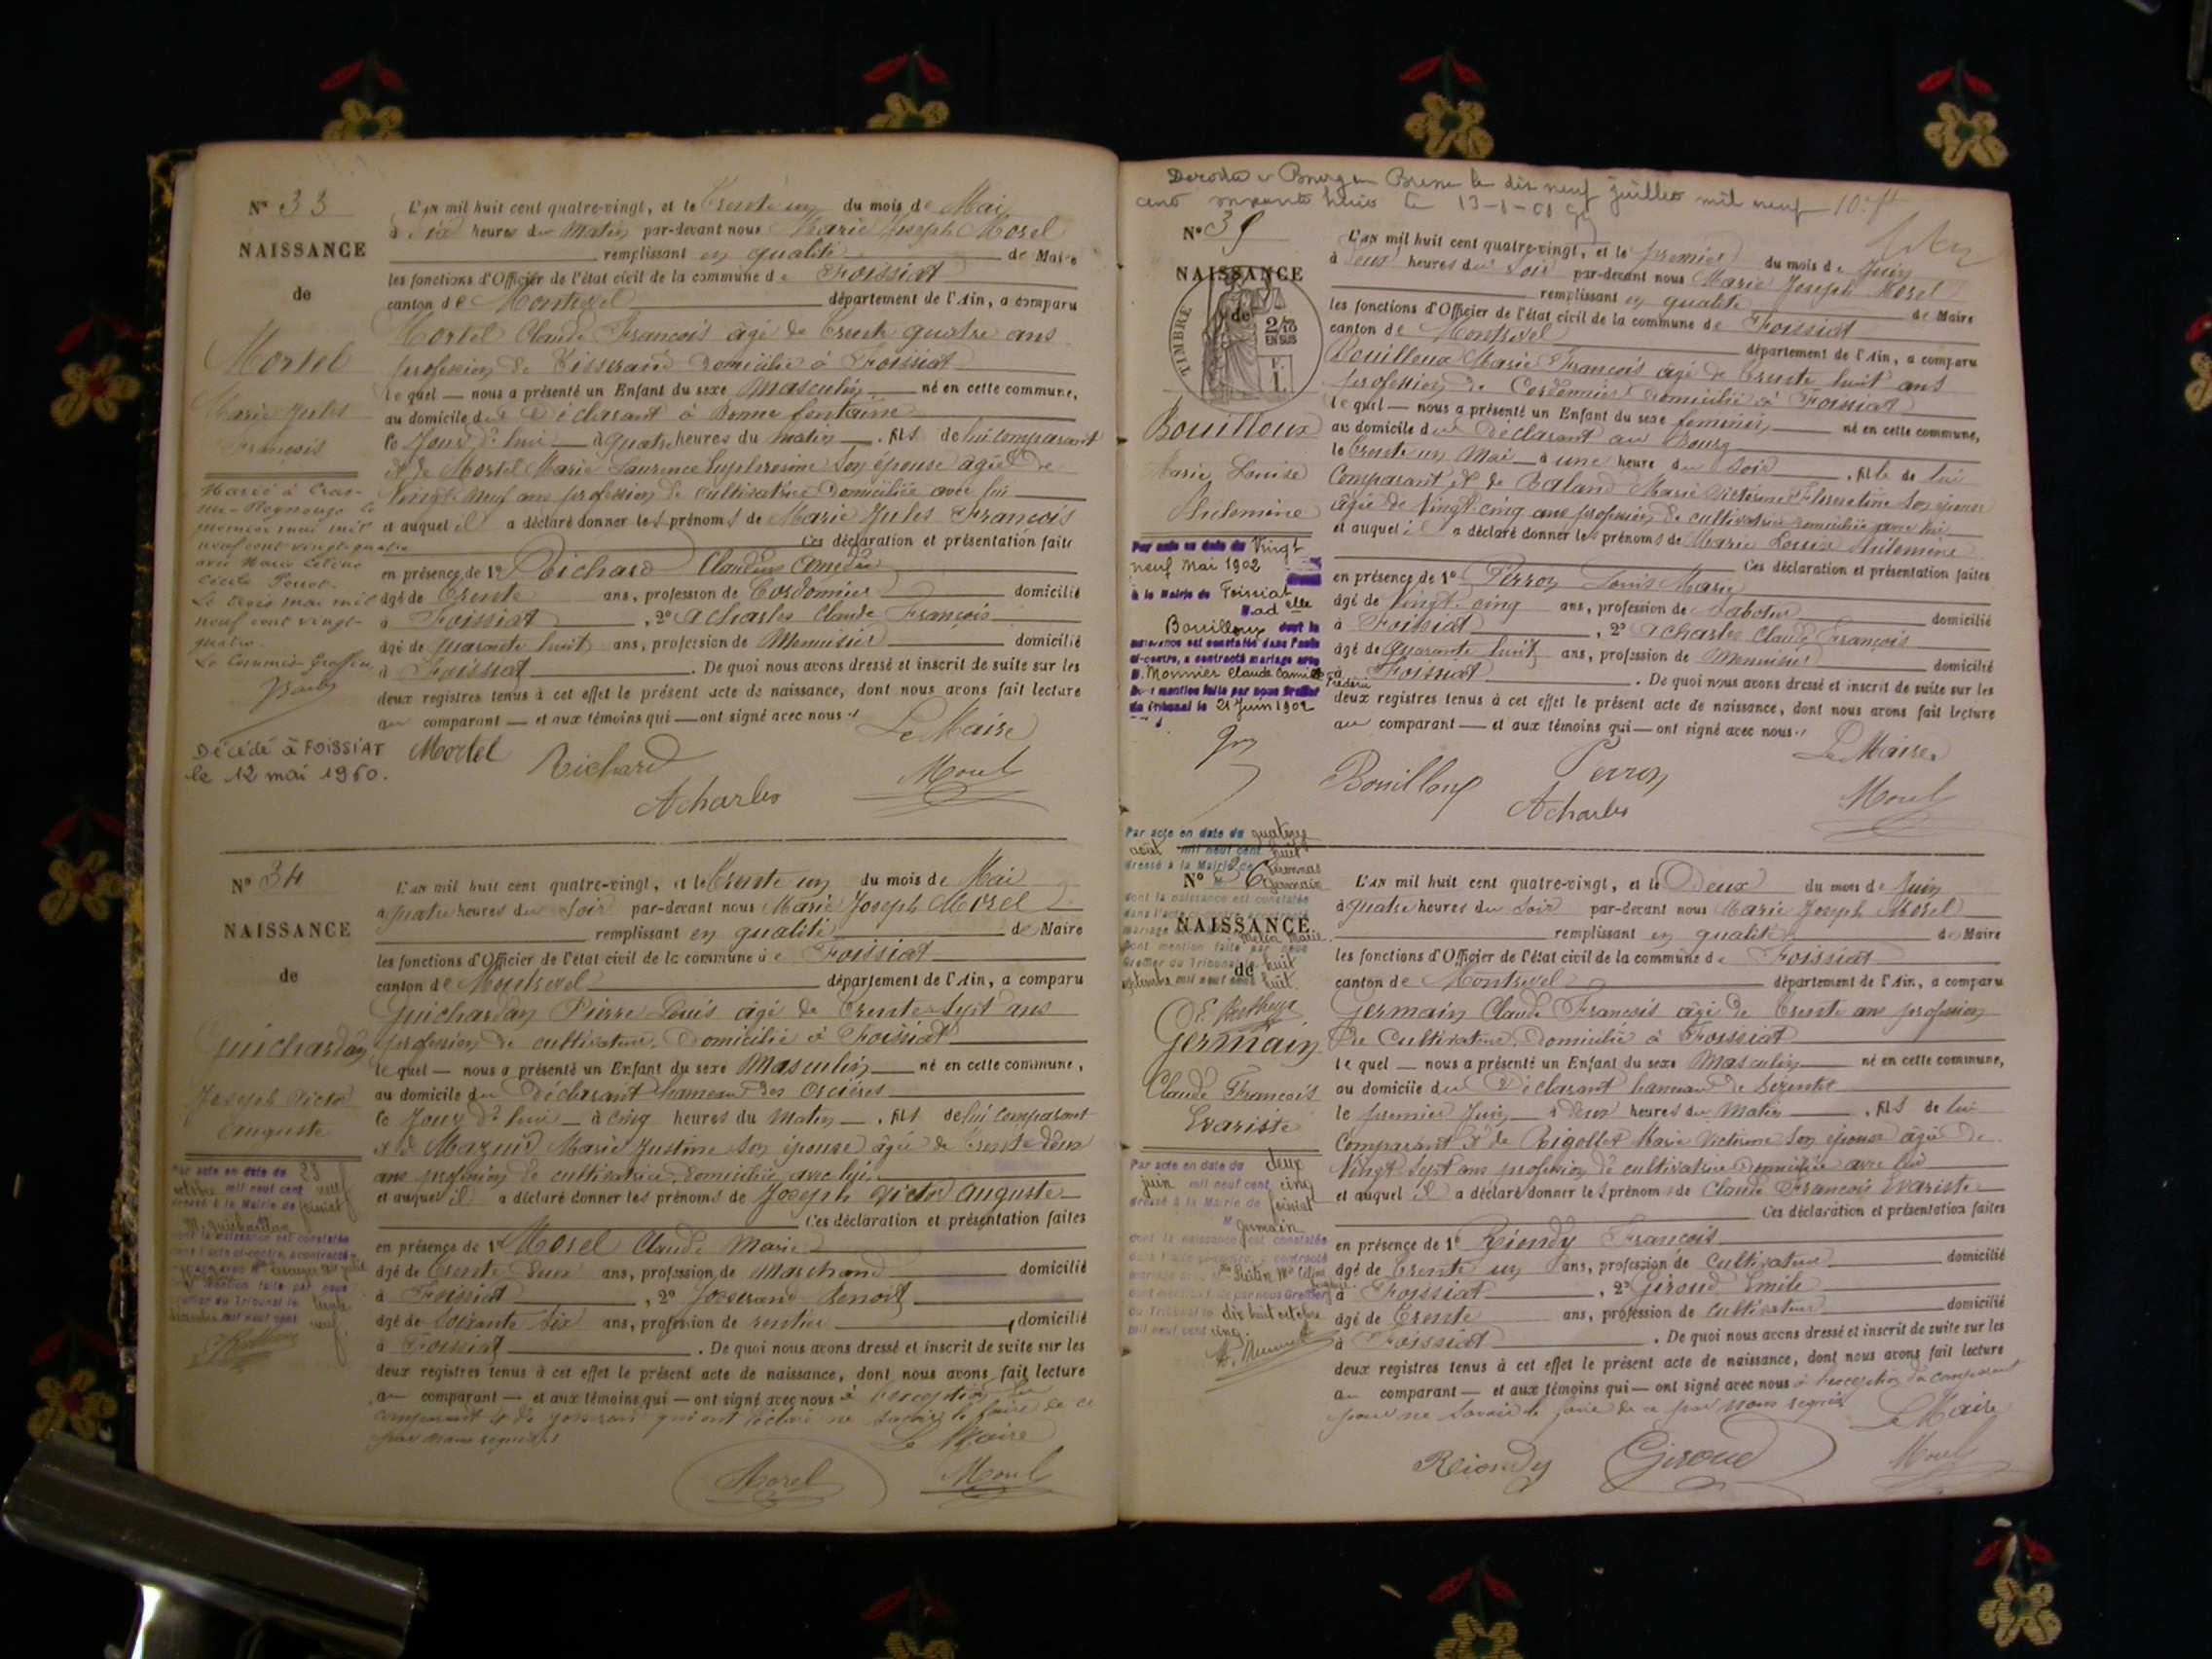 N° 33
NAISSANCE
de
Mortel
Marie Jules
François
Marié à Cras-
sur-Reyssouze le
premier mai mil
neuf cent vingt-quatre
avec Marie
Cécile
Le trois mai mil
neuf cent vingt-
quatre
Le Commis-Greffier
Décédé à FOISSIAT
le 12 mai 1960.
L'AN mil huit cent quatre-vingt, et le trente un du mois de Mai
à six heures du Matin par-devant nous Marie Joseph Morel
remplissant en qualité de Maire
les fonctions d'Officier de l'état civil de la commune de Foissiat
canton de Montrevel département de l'Ain, a comparu
Mortel Claude François âgé de trente quatre ans
profession de Tisserand domicilié à Foissiat
lequel — nous a présenté un Enfant du sexe Masculin né en cette commune,
au domicile du Déclarant à Bonne fontaine
le Jour d'hui à quatre heures du matin, fils de lui Comparant
et de Mortel Marie Laurence son épouse âgée de
vingt neuf ans profession de cultivatrice domiciliée avec lui
et auquel il a déclaré donner les prénoms de Marie Jules François
Ces déclaration et présentation faites
en présence de 1° Richard Claudius Amédée
âgé de trente ans, profession de Cordonnier domicilié
à Foissiat, 2° Acharles Claude François
âgé de quarante huit ans, profession de Menuisier domicilié
à Foissiat. De quoi nous avons dressé et inscrit de suite sur les
deux registres tenus à cet effet le présent acte de naissance, dont nous avons fait lecture
au comparant — et aux témoins qui — ont signé avec nous
Le Maire
Mortel Richard
Acharles Morel
N° 34
NAISSANCE
de
Guichardan
Joseph Victor
Auguste
Par acte en date du 23
octobre mil neuf cent neuf
dressé à la Mairie de Foissiat
M. Guichardan
dont la naissance est constatée
dans l'acte ci-contre, a contracté
dont mention faite par nous
Greffier du Tribunal le
décembre mil neuf cent neuf.
L'AN mil huit cent quatre-vingt, et le trente un du mois de Mai
à quatre heures du soir par-devant nous Marie Joseph Morel
remplissant en qualité de Maire
les fonctions d'Officier de l'état civil de la commune de Foissiat
canton de Montrevel département de l'Ain, a comparu
Guichardan Pierre Louis âgé de trente-sept ans
profession de cultivateur, domicilié à Foissiat
lequel — nous a présenté un Enfant du sexe Masculin né en cette commune,
au domicile du Déclarant hameau des Orcières
le Jour d'hui — à cinq heures du Matin —, fils de lui Comparant
et de Mazuir Marie Justine son épouse âgée de trente deux
ans profession de cultivatrice, domiciliée avec lui
et auquel il a déclaré donner les prénoms de Joseph Victor Auguste
Ces déclaration et présentation faites
en présence de 1° Morel Claude Marie
âgé de trente deux ans, profession de Marchand domicilié
à Foissiat, 2° Josserand Benoit
âgé de soixante six ans, profession de rentier, domicilié
à Foissiat. De quoi nous avons dressé et inscrit de suite sur les
deux registres tenus à cet effet le présent acte de naissance, dont nous avons fait lecture
au comparant — et aux témoins qui — ont signé avec nous à l'exception du
comparant et de Josserand qui ont déclaré ne savoir le faire de ce
par nous requis
Le Maire
Morel Morel
Bourg en Bresse le dix neuf juillet mil neuf
cent soixante huit le 13-1-69
N° 35
NAISSANCE
de
TIMBRE
2/10
EN SUS
F.
1.
Bouilloux
Marie Louise
Philomène
Par acte en date du Vingt
neuf Mai 1902
à la Mairie de Foissiat
Mad elle
Bouilloux dont la
naissance est constatée dans l'acte
ci-contre, a contracté mariage avec
M. Monnier Claude Camille
Frédéric
Dont mention faite par nous Greffier
du Tribunal le 21 Juin 1902
L'AN mil huit cent quatre-vingt, et le premier du mois de Juin
à deux heures du soir par-devant nous Marie Joseph Morel
remplissant en qualité de Maire
les fonctions d'Officier de l'état civil de la commune de Foissiat
canton de Montrevel département de l'Ain, a comparu
Bouilloux Marie François âgé de trente huit ans
profession de Cordonnier domicilié à Foissiat
lequel — nous a présenté un Enfant du sexe féminin né en cette commune,
au domicile du Déclarant au Bourg
le trente un Mai — à une heure du soir, fille de lui
Comparant et de Baland Marie Victorine son épouse
âgée de Vingt-cinq ans profession de cultivatrice domiciliée avec lui
et auquel il a déclaré donner les prénoms de Marie Louise Philomène
Ces déclaration et présentation faites
en présence de 1° Perron Louis Marie
âgé de vingt-cinq ans, profession de Sabotier domicilié
à Foissiat, 2° Acharles Claude François
âgé de quarante huit ans, profession de Menuisier domicilié
à Foissiat. De quoi nous avons dressé et inscrit de suite sur les
deux registres tenus à cet effet le présent acte de naissance, dont nous avons fait lecture
au comparant — et aux témoins qui — ont signé avec nous
Le Maire
Bouilloux Perron
Acharles Morel
Par acte en date du quatorze
août mil neuf cent huit
dressé à la Mairie de
Germain
dont la naissance est constatée
dans l'acte ci-contre a contracté
mariage
Dont mention faite par nous
Greffier du Tribunal le huit
septembre mil neuf cent huit.
N° 36
NAISSANCE
de
Germain
Claude François
Evariste
Par acte en date du deux
juin mil neuf cent cinq
dressé à la Mairie de Foissiat
M. Germain
dont la naissance est constatée
dans l'acte ci-contre, a contracté
dont mention faite par nous Greffier
du Tribunal le dix huit octobre
mil neuf cent cinq.
L'AN mil huit cent quatre-vingt, et le Deux du mois de Juin
à quatre heures du soir par-devant nous Marie Joseph Morel
remplissant en qualité de Maire
les fonctions d'Officier de l'état civil de la commune de Foissiat
canton de Montrevel département de l'Ain, a comparu
Germain Claude François âgé de trente ans profession
de Cultivateur, domicilié à Foissiat
lequel — nous a présenté un Enfant du sexe Masculin né en cette commune,
au domicile du Déclarant hameau de
le premier Juin à deux heures du Matin, fils de lui
Comparant et de Rigollet Marie Victorine son épouse âgée de
Vingt sept ans profession de cultivatrice domiciliée avec lui
et auquel il a déclaré donner les prénoms de Claude François Evariste
Ces déclaration et présentation faites
en présence de 1° Riondy François
âgé de trente un ans, profession de Cultivateur domicilié
à Foissiat, 2° Giroud Emile
âgé de trente ans, profession de Cultivateur domicilié
à Foissiat. De quoi nous avons dressé et inscrit de suite sur les
deux registres tenus à cet effet le présent acte de naissance, dont nous avons fait lecture
au comparant — et aux témoins qui — ont signé avec nous à l'exception du comparant
pour ne savoir le faire de ce par nous requis
Le Maire
Riondy Giroud Morel